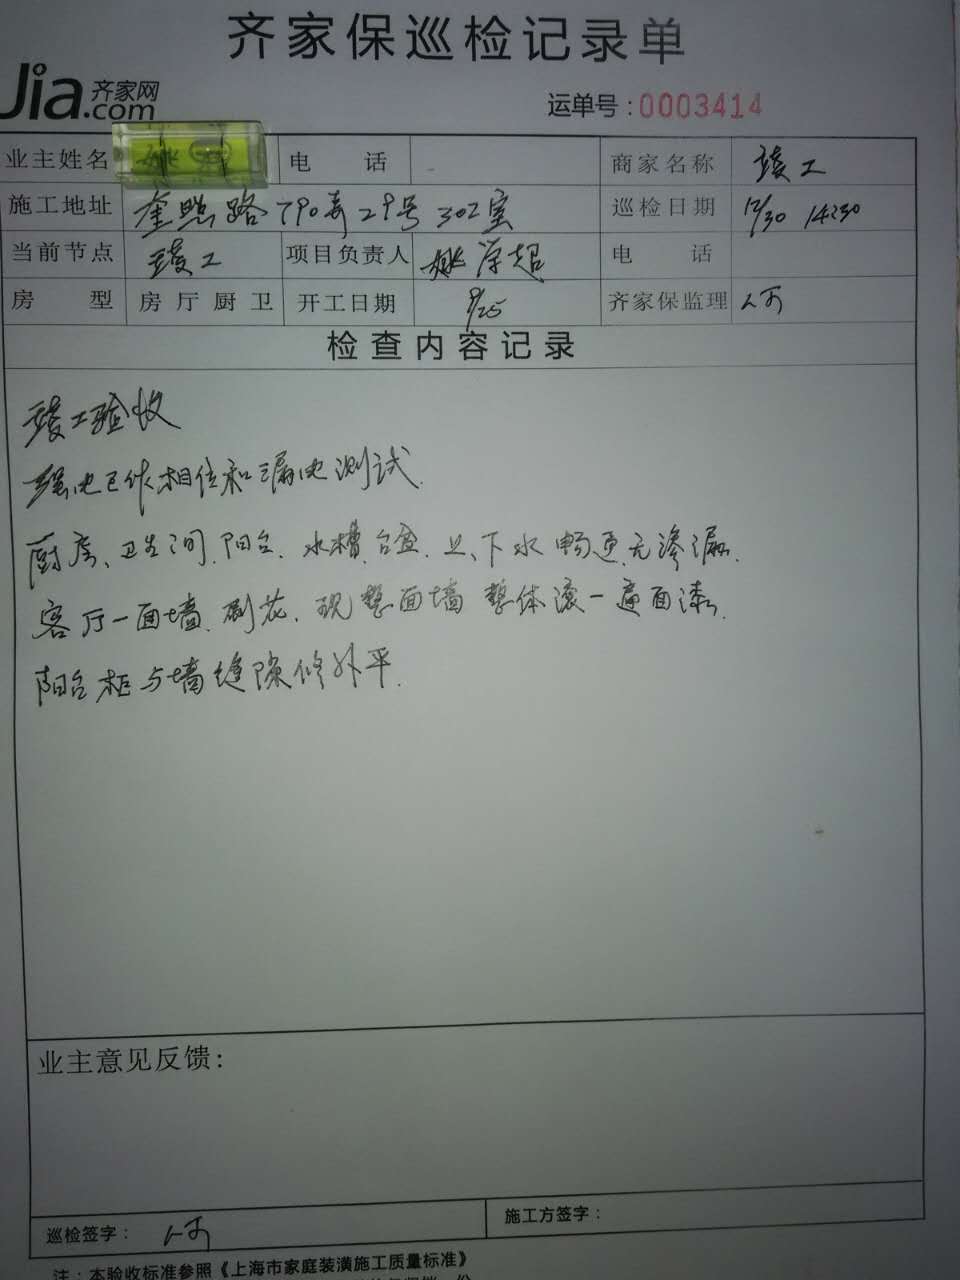 齐家保巡检记录单
Jia.com 齐家网
运单号:0003414
业主姓名 电话 商家名称 竣工
施工地址 奎照路790弄29号302室 巡检日期 12/30 14:30
当前节点 竣工 项目负责人 姚 超 电话
房型 房厅厨卫 开工日期 9/25 齐家保监理
检查内容记录
竣工验收
强电已作相位和漏电测试.
厨房、卫生间、阳台、水槽、台盆、上、下水畅通、无渗漏.
客厅一面墙、刷花、现整面墙整体滚一遍面漆.
阳台柜与墙缝隙修补平.
业主意见反馈:
巡检签字:
施工方签字:
注:本验收标准参照《上海市家庭装潢施工质量标准》